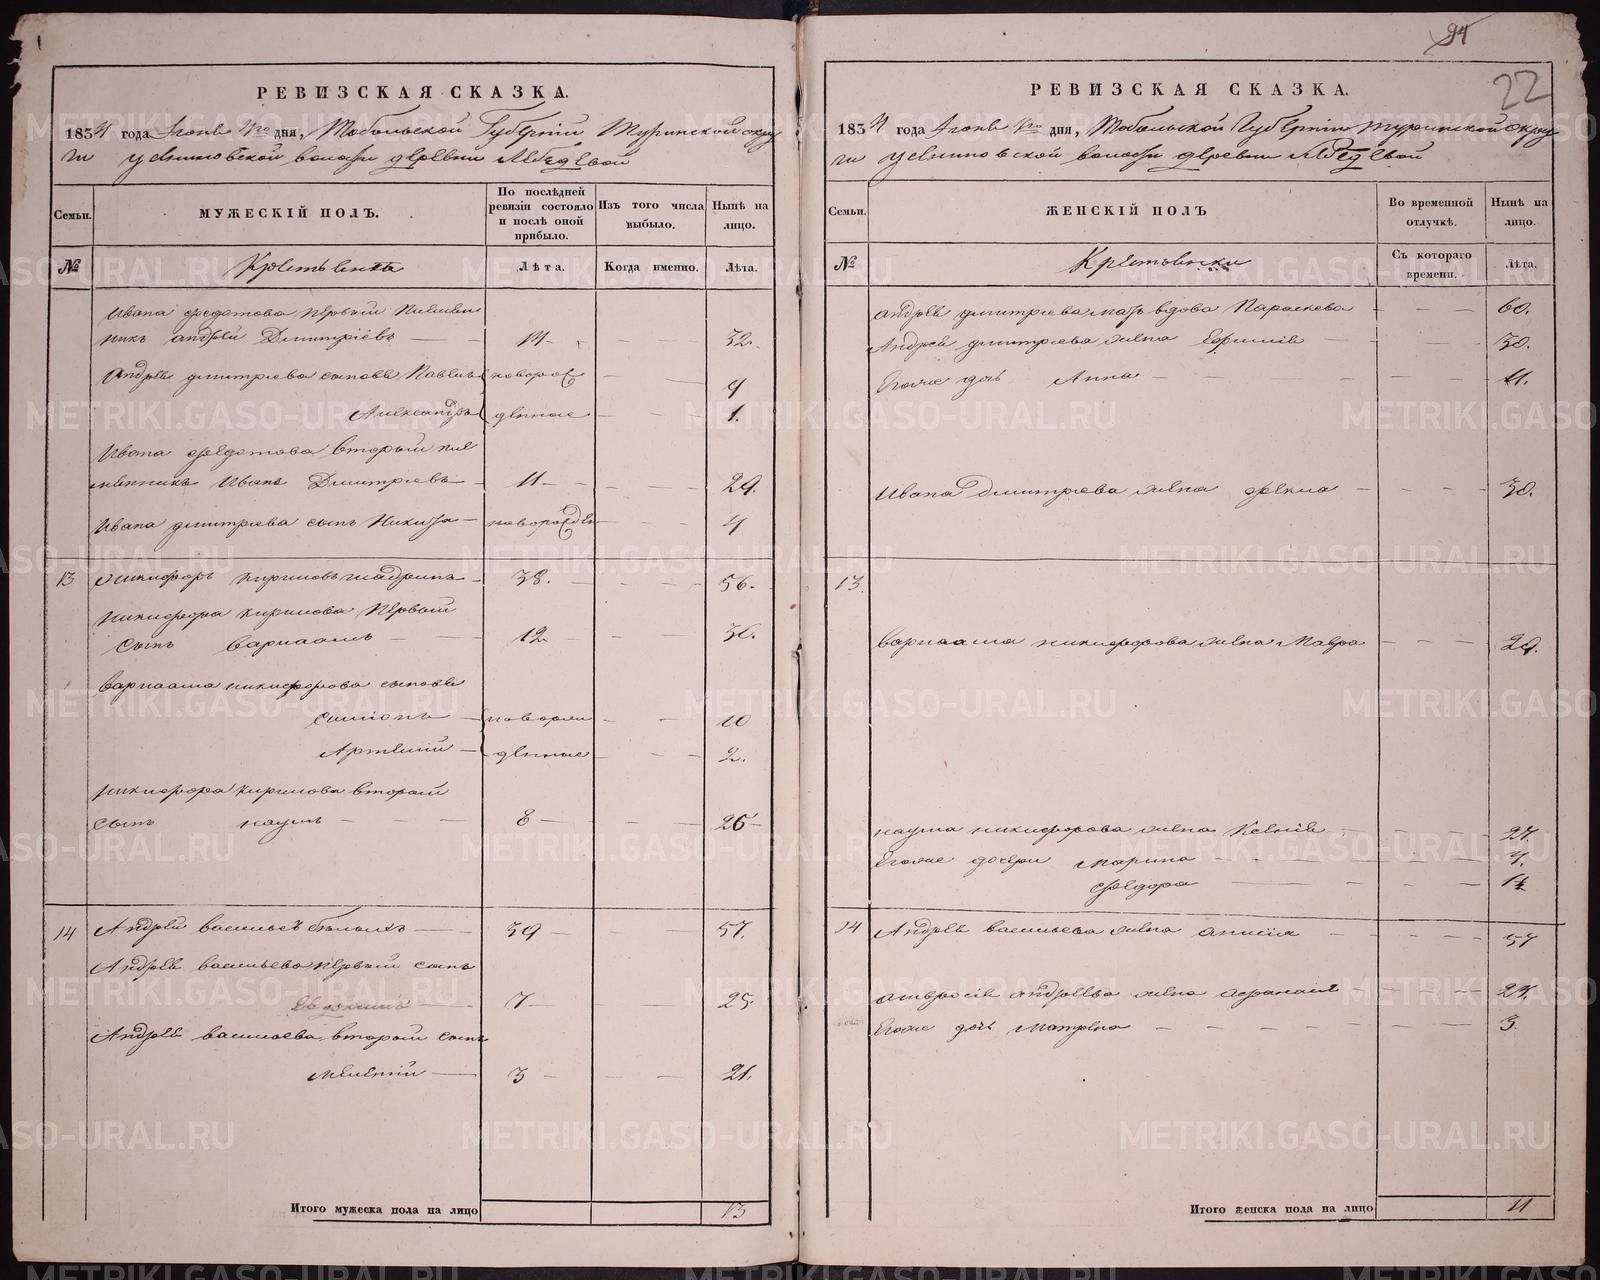 94
22
РЕВИЗСКАЯ СКАЗКА.
1834 года Іюня дня, Тобольской Губерніи Туринской окру
ги волости деревни Лебедевой
Семьи.
МУЖЕСКІЙ ПОЛЪ.
По послѣдней ревизіи состояло и послѣ оной прибыло.
Изъ того числа выбыло.
Нынѣ на лицо.
№
Крестьянъ
Лѣта.
Когда именно.
Лѣта.
Ивана Федотова первый племян
никъ Андрей Дмитріевъ 14 32.
Андрея Дмитріева сыновья Павелъ новорож 9
Александръ денные 1.
Ивана Федотова вторый пле
мянникъ Иванъ Дмитріевъ 11 29.
Ивана Дмитріева сынъ Никита новорожден 4
13 Никифоръ Кириловъ Шабринъ 38. 56.
Никифора Кирилова первый
сынъ Варлаамъ 12 30.
Варлаама Никифорова сыновья
Симіонъ новорож 10
Артемій денные 2.
Никифора Кирилова вторый
сынъ Наумъ 8 26
14 Андрей Васильевъ 39 57.
Андрея Васильева первый сынъ
7 25.
Андрея Васильева вторый сынъ
Мелетій 3 21.
Итого мужеска пола на лицо 13
РЕВИЗСКАЯ СКАЗКА.
1834 года Іюня дня, Тобольской Губерніи Туринской окру
ги волости деревни Лебедевой
Семьи.
ЖЕНСКІЙ ПОЛЪ
Во временной отлучкѣ.
Нынѣ на лицо.
№
Крестьянки
Съ котораго времени.
Лѣта.
Андрея Дмитріева мать вдова Параскева 60.
Андрея Дмитріева жена Ефимія 30.
Егоже дочь Анна 11.
Ивана Дмитріева жена Фекла 30.
13.
Варлаама Никифорова жена Мавра 29.
Наума Никифорова жена Ксенія 27.
Егоже дочери Марина 4.
Федора 1½
14 Андрея Васильева жена Анисія 57
Амвросія Андреева жена Афанасія 27.
Егоже дочь Матрена 3.
Итого женска пола на лицо 11
METRIKI.GASO-URAL.RU